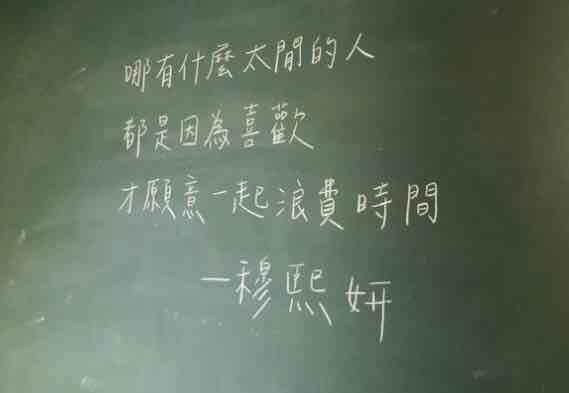 哪有什麼太閒的人
都是因為喜歡
才願意一起浪費時間
—穆熙妍